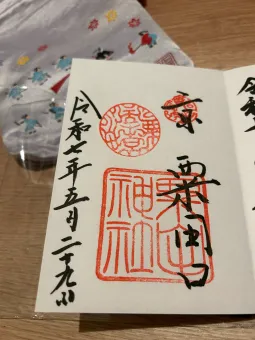 京 粟田口
粟田神社
令和七年五月二十九日